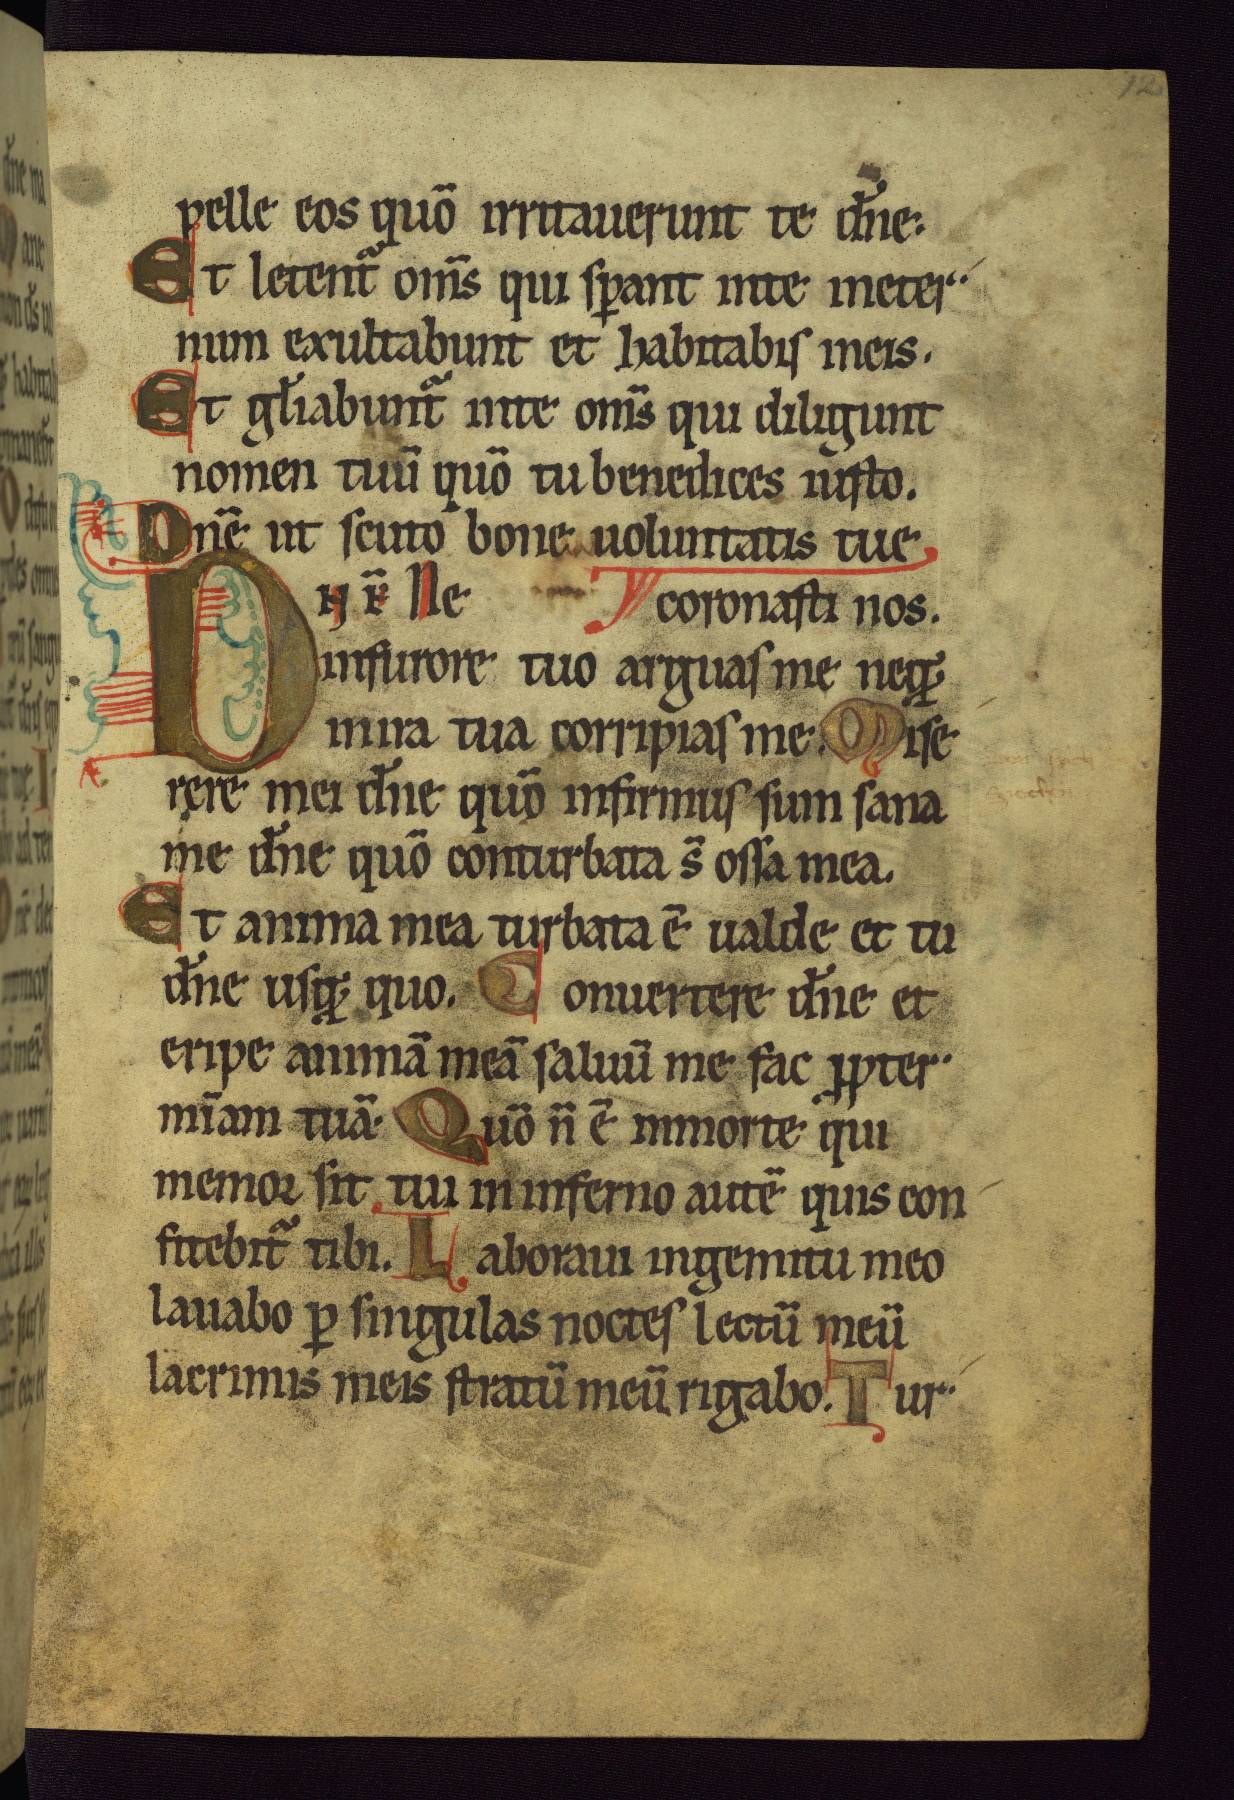 12
pelle eos quō irritauerunt te dn̄e.
Et letent᷑ om̄s qui sꝑant inte ineter
num exultabunt et habitabis ineis.
Et gl̄iabunt᷑ inte om̄s qui diligunt
nomen tuū quō tu benedices iusto.
Dn̄e ut scuto bone uoluntatis tue
coronasti nos.
D n̄ r̄ Ne
infurore tuo arguas me neqꝫ
inira tua corripias me. Mise
rere mei dn̄e quō infirmus sum sana
me dn̄e quō conturbata s̄ ossa mea.
Et anima mea turbata ē ualde et tu
dn̄e usqꝫ quo. Conuertere dn̄e et
eripe animā meā saluū me fac ꝓpter
mīam tuā. Quō n̄ ē inmorte qui
memor sit tui in inferno autē quis con
fitebit᷑ tibi. Laboraui ingemitu meo
lauabo ꝑ singulas noctes lectū meū
lacrimis meis stratū meū rigabo. Tur